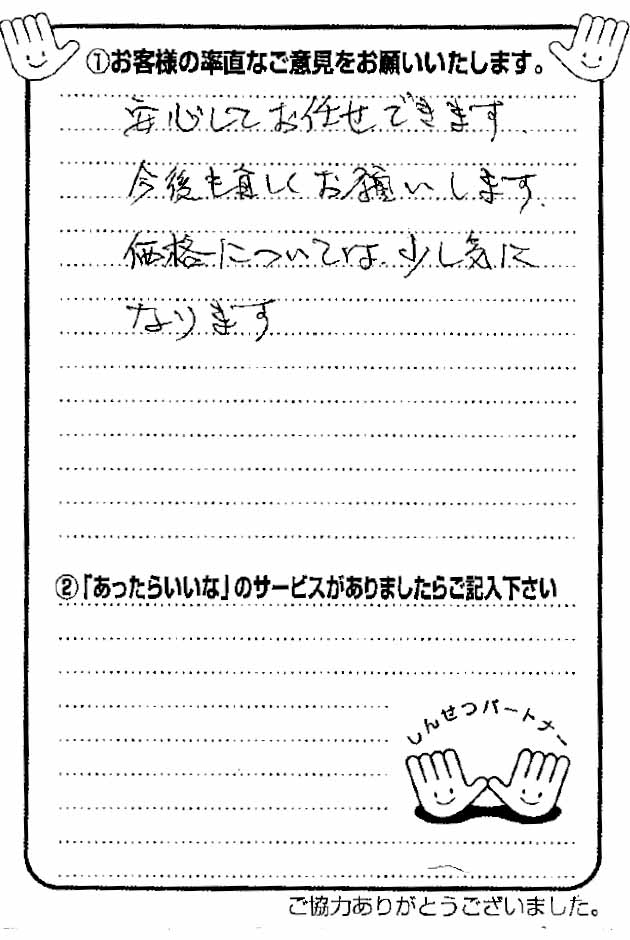 ①お客様の率直なご意見をお願いいたします。
安心してお任せできます.
今後も宜しくお願いします.
価格については、少し気に
なります
②「あったらいいな」のサービスがありましたらご記入下さい
しんせつパートナー
ご協力ありがとうございました。